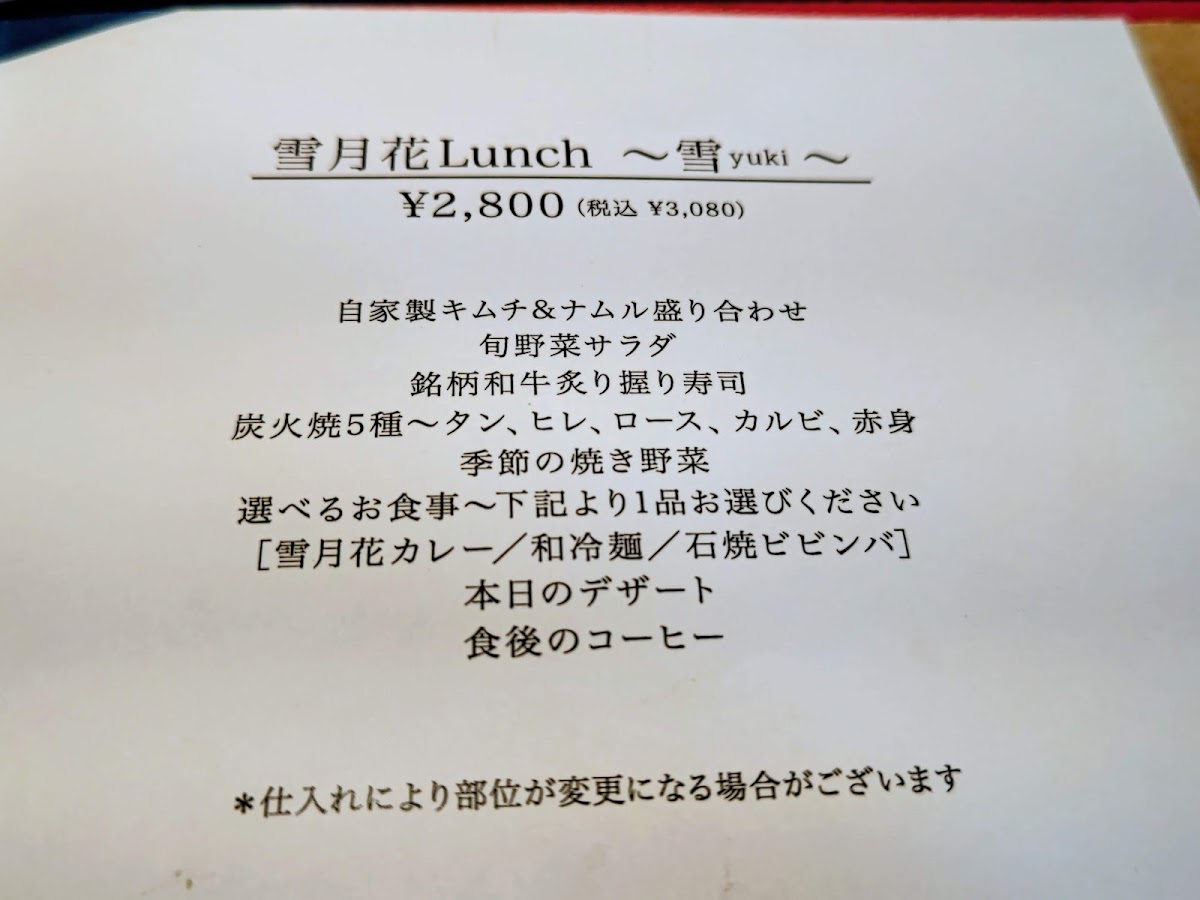 雪月花Lunch ～雪yuki～
¥2,800(税込 ¥3,080)
自家製キムチ&ナムル盛り合わせ
旬野菜サラダ
銘柄和牛炙り握り寿司
炭火焼5種～タン、ヒレ、ロース、カルビ、赤身
季節の焼き野菜
選べるお食事～下記より1品お選びください
[雪月花カレー／和冷麺／石焼ビビンバ]
本日のデザート
食後のコーヒー
*仕入れにより部位が変更になる場合がございます